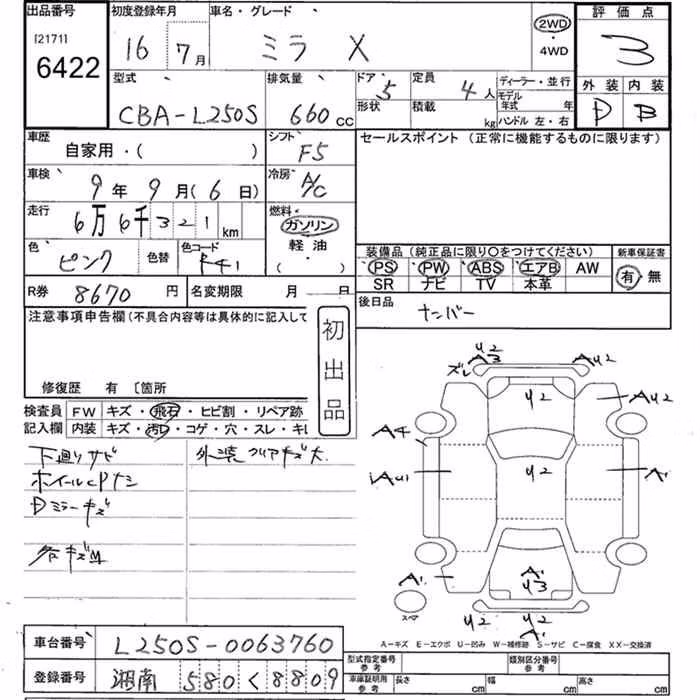 出品番号 初度登録年月 車名・グレード 評価点
[2171] 6422 16 7月 ミラ X 2WD ・ 4WD 3
型式 排気量 ドア 定員 ディーラー・並行 外装 内装
CBA-L250S 660cc 5 4人 モデル年式 年 D B
形状 積載 kg ハンドル 左・右
車歴 シフト セールスポイント (正常に機能するものに限ります)
自家用・( ) F5
車検 冷房
9年 9月 (6日) A/C
走行 燃料
6万 6千 3 2 1 km ガソリン
軽油
・( )
色 色替 色コード 装備品 (純正品に限り〇をつけてください) 新車保証書
ピンク R41 PS PW ABS エアB AW 有・無
SR ナビ TV 本革
R券 8670円 名変期限 月 日 後日品 ナンバー
注意事項申告欄 (不具合内容等は具体的に記入して
初出品
修復歴 有 〔箇所
検査員 FW キズ・飛石・ヒビ割・リペア跡
記入欄 内装 キズ・汚れ・コゲ・穴・スレ・キレ
下廻りサビ 外装クリアキズ大
ホイルcPナシ
Dミラーキズ
各キズU
U2
ズレ A3 AU2
U2 AU2
A4
iAU1 U2 A1
A1 A1
U3
スペア U2 U2
A1
A-キズ E-エクボ U-凹み W-補修跡 S-サビ C-腐食 XX-交換済
車台番号 L250S-0063760
型式指定番号 参考 類別区分番号 参考
登録番号 湘南 580 く 8809
車庫証明用 参考 長さ cm 幅 cm 高さ cm